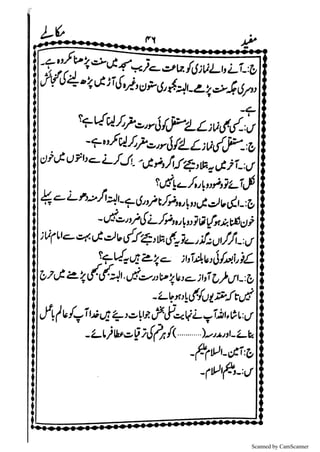 مفید ۴۶ مکالمے
ج:۔ آنے والے نمازی کو جماعت سے قریب مسجد میں سنت پڑھنا مکروہ ہے۔
دوسری جگہ سنت پڑھے۔ البتہ مجبوری ستون وغیرہ کی آڑ میں پڑھ لینے کی گنجائش
ہے۔
س:۔ کسی بھی نماز کے لئے مستقل کوئی سورت مقرر کر لینا کیسا ہے؟
ج:۔ مستقل کسی نماز کے لئے کوئی سورت مقرر کر لینا مکروہ ہے۔
س:۔ آخر میں یہ بتلا دیجئے کہ اگر وضو میں مسواک کرنے سے دانتوں میں خون
نکل آئے تو وضو دوبارہ کرے یا نہیں؟
ج:۔ ایسی حالت میں دوبارہ وضو کرنا ضروری ہے۔ البتہ اگر منہ دھونے سے پہلے
خون نکلنا بند ہو گیا تھا تو دوبارہ وضو کرنے کی ضرورت نہیں۔
س:۔ اگر گراں نہ گذرے تو یہ بھی بتلا دیجئے کہ کسی حالت میں بہت سے امام نماز
کے فوراً بعد کوئی دعا بلند آواز سے پڑھتے ہیں یہ کیسا ہے؟
ج:۔ اس طرح آواز سے دعا پڑھنا درست نہیں، البتہ کبھی کبھی پڑھنے میں حرج
نہیں تاکہ مقتدیوں کو بھی یاد ہو جائے۔
س:۔ ماشاء اللہ آپ نے نہایت تسلی بخش جوابات دیئے ہیں خدا آپ کو عالم باعمل
بنائے۔ اور مدرسہ (.............) کو ہر قسم کی ترقیات عطا فرمائے۔
ج:۔ آمین۔ السلام علیکم۔
س:۔ وعلیکم السلام۔
Scanned by CamScanner